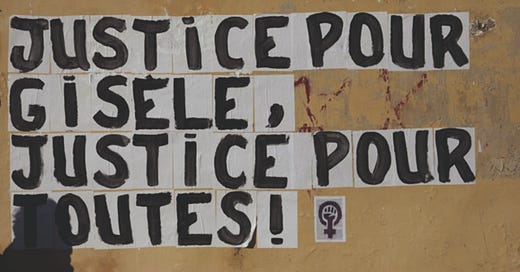 JUSTiCE POUR
GiSÈLE,
JUSTiCE POUR
TOUTES!